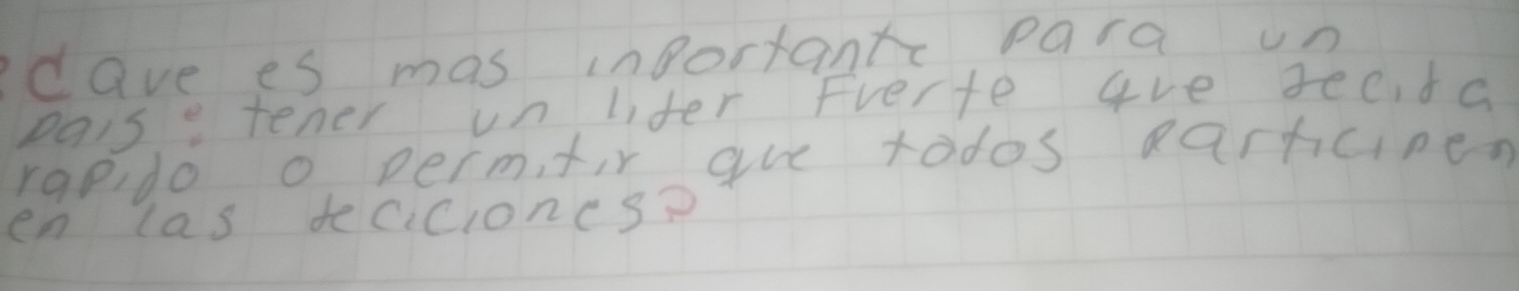 ¿Que es mas inportante para un
pais: tener un lider Fuerte que decida
rapido o permitir que todos participen
en las deciciones?